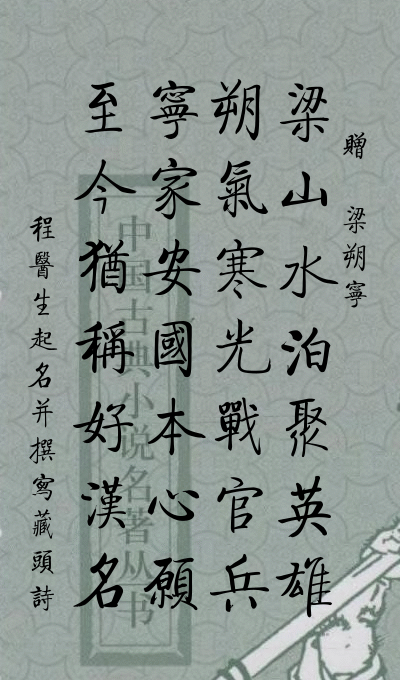 贈 梁朔寧
梁山水泊聚英雄
朔氣寒光戰官兵
寧家安國本心願
至今猶稱好漢名
程醫生起名并撰寫藏頭詩
中国古典小说名著丛书